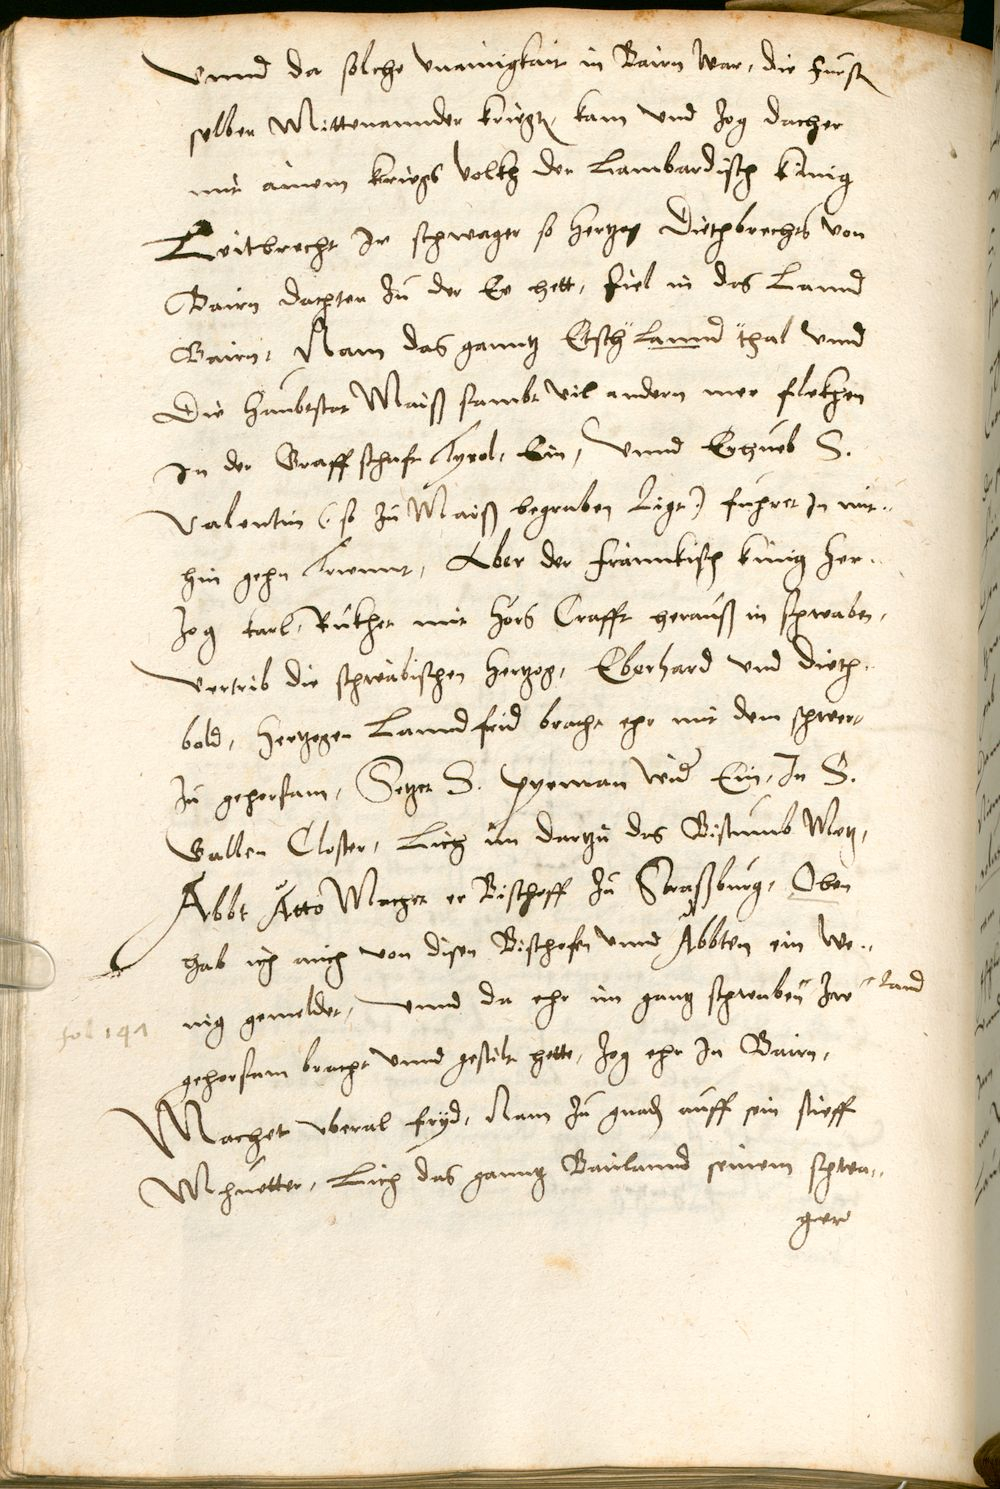 Vnnd da solche vnainigkait in Bairn war, die Fürst
selben Mittenannder kriegt, kam vnd zog dacher
mit ainem kriegs volkh der Lambardisch künig
Leitbrecht Ir schwager so Hertzog Diethbrechts von
Bairn dachter zu der Ee hett, Fiel in das Lannd
Bairn, Nam das ganntz Etsch Lannd thal vnnd
Die haubtstat Maiß sambt vil andern mer flekhen
In der Graffschafft Tyrol, Ein, vnnd Erhueb S.
Valentin (: so zu Maiß begraben Ligt :) fuhret In mit-
hin gehn Triennt, Aber der Frännkisch künig Her-
zog karl, Rukhet mit Hörs Crafft herauß in schwaben,
vertrib die schwäbischen Hertzog, Eberhard vnd dieth-
bold, Hertzogen Lanndfrid bracht ehr mit dem schwert
zu gehorsam, Setzet S. Pyrman wider Ein, In S.
Gallen Closter, Lich im dartzu das Bistumb Metz,
Abbt Atto Machet er Bischoff zu Straßburg, Oben
hab ich auch von disen Bischofen vnnd Abbten ein we-
nig gemeldet, vnnd da ehr im gantz schwaben Land zwr
fol 141
gehorsam bracht vnnd gestilt hette, zog ehr In Bairn,
Machet vberal fryd, Nam zu gnaden auff sein stieff
Mhuetter, Lich das ganntz Bairlannd seinem schwa-
gern